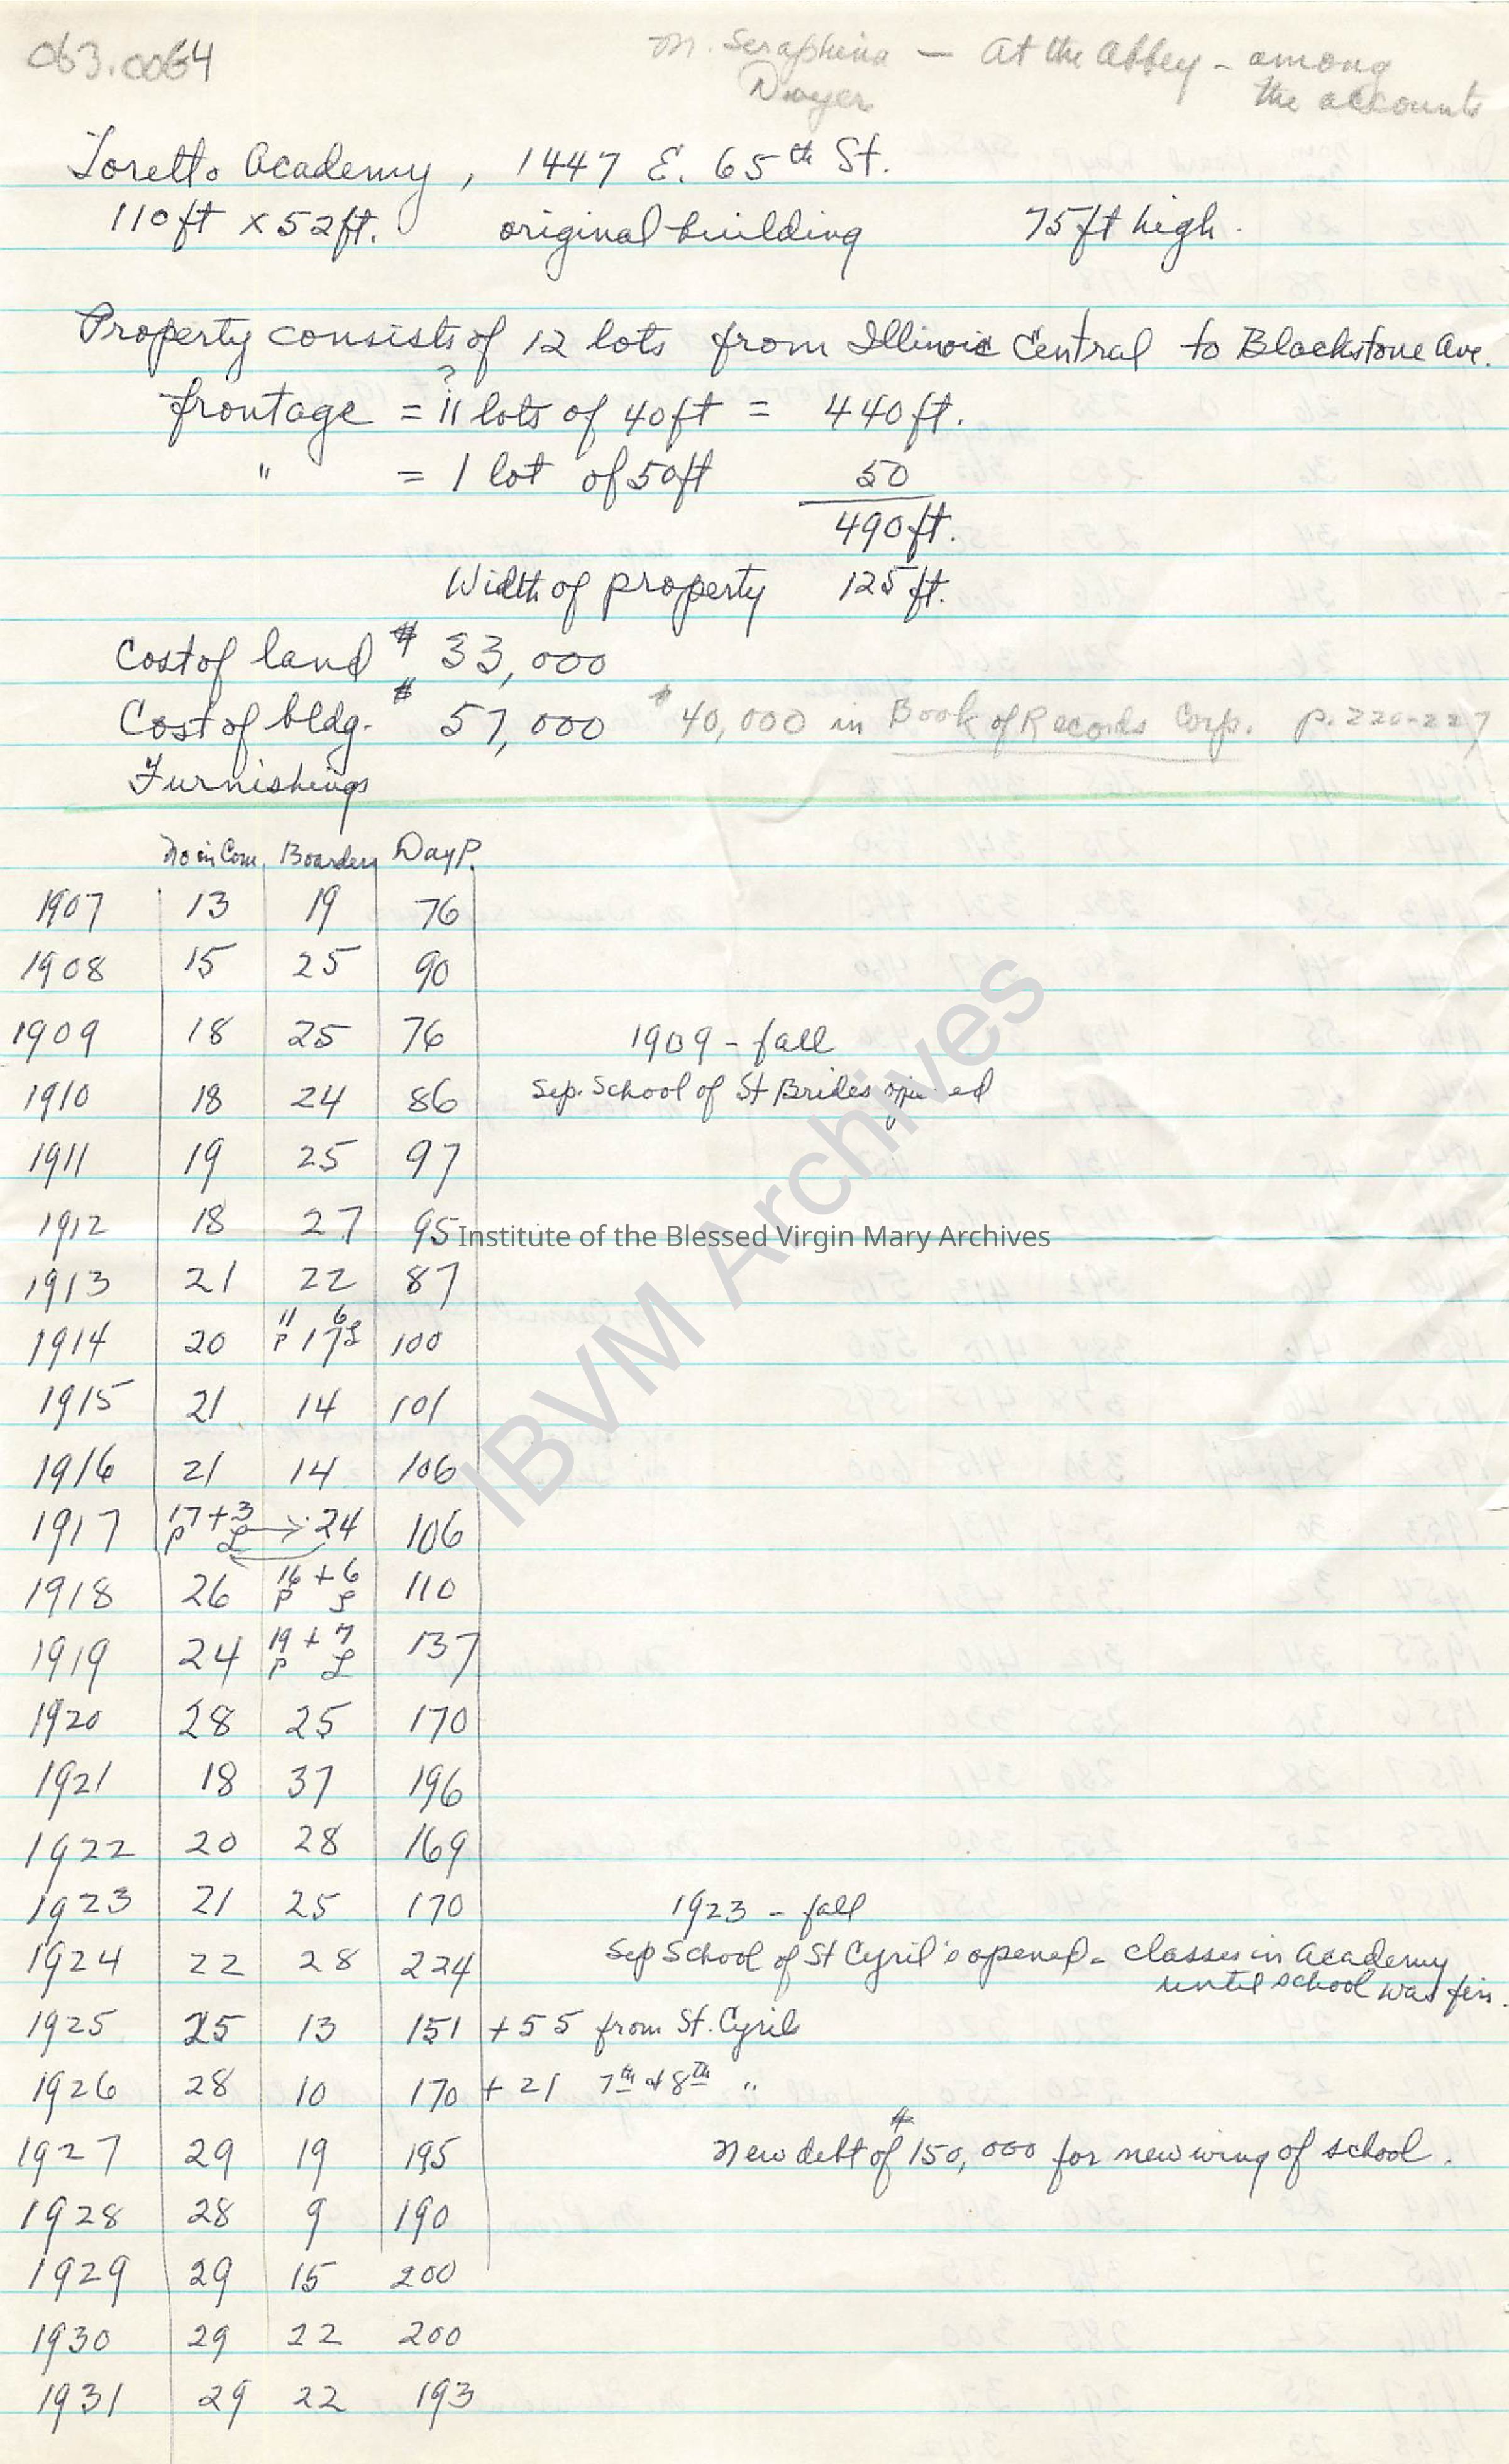 063.0064
M. Seraphina — At the Abbey - among
Dwyer the accounts
Loretto Academy, 1447 E. 65th St.
110ft x 52ft. original building 75ft high.
Property consists of 12 lots from Illinois Central to Blackstone Ave.
?
frontage = 11 lots of 40ft = 440ft.
" = 1 lot of 50ft 50
490ft.
Width of property 125ft.
Cost of land $ 33,000
Cost of bldg. $ 57,000 $40,000 in Book of Records Corp. p. 220-227
Furnishings
No in Com. Boarders Day P.
1907 13 19 76
1908 15 25 90
1909 18 25 76 1909 - fall
1910 18 24 86 Sep. School of St Brides opened
1911 19 25 97
1912 18 27 95
Institute of the Blessed Virgin Mary Archives
IBVM Archives
1913 21 22 87
11 6
1914 20 P 17 L 100
1915 21 14 101
1916 21 14 106
1917 17 + 3 → 24 106
P L
1918 26 16 + 6 110
P L
1919 24 19 + 7 137
P L
1920 28 25 170
1921 18 37 196
1922 20 28 169
1923 21 25 170 1923 - fall
1924 22 28 224 Sep School of St Cyril's opened - classes in Academy
until school was fin.
1925 25 13 151 +55 from St. Cyril
1926 28 10 170 + 21 7th & 8th "
1927 29 19 195 New debt of $150,000 for new wing of school.
1928 28 9 190
1929 29 15 200
1930 29 22 200
1931 29 22 193